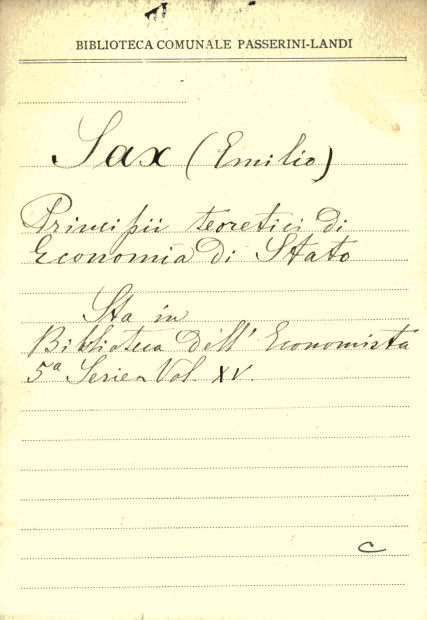 BIBLIOTECA COMUNALE PASSERINI-LANDI
Sax (Emilio)
Principii teoretici di
Economia di Stato
Sta in
Biblioteca dell' Economista
5ª Serie Vol. XV.
C